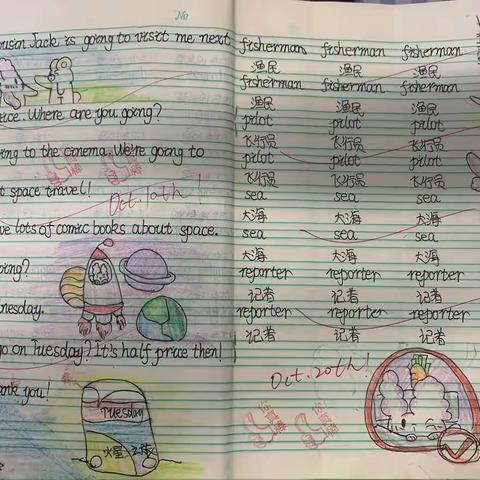 No
ousin Jack is going to visit me next
ice. Where are you going?
ing to the cinema. We're going to
t space travel!
Oct. 10th!
ve lots of comic books about space.
oing?
nesday.
go on Tuesday? It's half price then!
ank you!
Tuesday
火星
fisherman fisherman fisherman
渔民 渔民 渔民
fisherman fisherman fisherman
渔民 渔民 渔民
pilot pilot pilot
飞行员 飞行员 飞行员
pilot pilot pilot
飞行员 飞行员 飞行员
sea sea sea
大海 大海 大海
sea sea sea
大海 大海 大海
reporter reporter reporter
记者 记者 记者
reporter reporter reporter
记者 记者 记者
Oct. 20th!